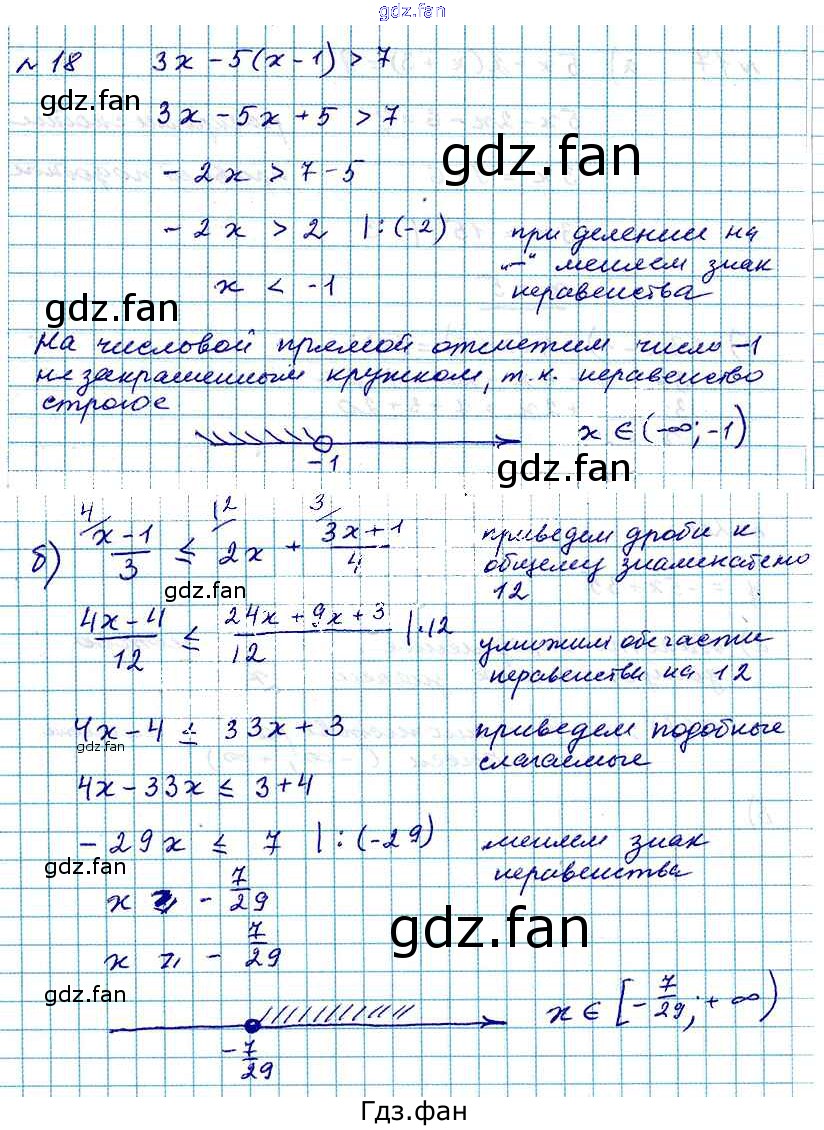 gdz.fan
№ 18 3x - 5(x - 1) > 7
gdz.fan
3x - 5x + 5 > 7
gdz.fan
- 2x > 7 - 5
- 2x > 2 | : (-2) при делении на
"-" меняем знак
x < -1 неравенства
gdz.fan
На числовой прямой отметим число -1
не закрашенным кружком, т.к. неравенство
строгое
-1
x ∈ (-∞; -1)
gdz.fan
4 12 3
б) x-1/3 ≤ 2x + 3x+1/4 приведем дроби к
общему знаменателю
12
gdz.fan
4x-4/12 ≤ 24x+9x+3/12 | ·12 умножим обе части
неравенства на 12
4x - 4 ≤ 33x + 3 приведем подобные
слагаемые
gdz.fan
4x - 33x ≤ 3 + 4
- 29x ≤ 7 | : (-29) меняем знак
неравенства
gdz.fan
x ≥ - 7/29
gdz.fan
x ≥ - 7/29
gdz.fan
-7/29
x ∈ [-7/29; +∞)
Гдз.фан